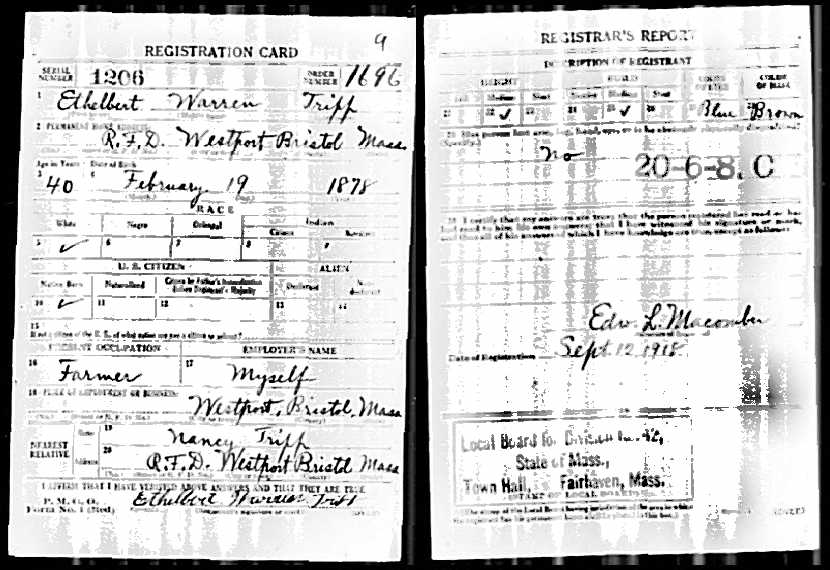 9
REGISTRATION CARD
SERIAL NUMBER 1206 ORDER NUMBER 1696
1 Ethelbert Warren Tripp
2 PERMANENT HOME ADDRESS:
R.F.D. Westport Bristol Mass.
Age in Years Date of Birth
3 40 6 February 19 1878
RACE
White Negro Oriental Indian
Citizen
5 ✓ 6 7 8
U. S. CITIZEN ALIEN
Native Born Naturalized Citizen by Father's Naturalization Before Registrant's Majority Declarant Non-declarant
10 ✓ 11 12 13 14
15
If not a citizen of the U. S., of what nation are you a citizen or subject?
PRESENT OCCUPATION EMPLOYER'S NAME
16 Farmer 17 Myself
18 PLACE OF EMPLOYMENT OR BUSINESS:
Westport, Bristol, Mass
NEAREST RELATIVE Name 19 Nancy Tripp
Address 20 R.F.D. Westport Bristol Mass
I AFFIRM THAT I HAVE VERIFIED ABOVE ANSWERS AND THAT THEY ARE TRUE
P. M. G. O.
Form No. 1 (Red) Ethelbert Warren Tripp
REGISTRAR'S REPORT
DESCRIPTION OF REGISTRANT
HEIGHT BUILD COLOR OF EYES COLOR OF HAIR
Tall Medium Short Slender Medium Stout
21 22 ✓ 23 24 25 ✓ 26 27 Blue 28 Brown
29 Has person lost arm, leg, hand, eye, or is he obviously physically disqualified?
(Specify.)
No
20-6-8. C
30 I certify that my answers are true; that the person registered has read or has
had read to him his own answers; that I have witnessed his signature or mark,
and that all of his answers of which I have knowledge are true, except as follows:
Edw. L. Macomber
Date of Registration Sept. 12 1918
Local Board for Division No. 42,
State of Mass.,
Town Hall, Fairhaven, Mass.
STAMP OF LOCAL BOARD
(The stamp of the Local Board having jurisdiction of the area in which
the registrant has his permanent home shall be placed in this box.)
(OVER)